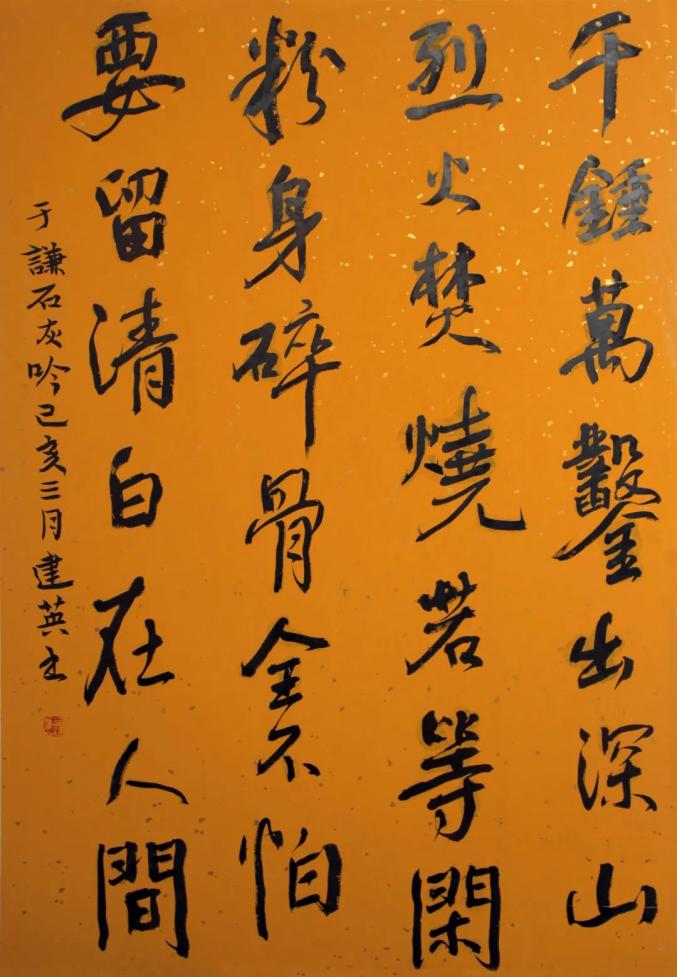 千錘萬鑿出深山
烈火焚燒若等閑
粉身碎骨全不怕
要留清白在人間
于謙石灰吟己亥三月建英书